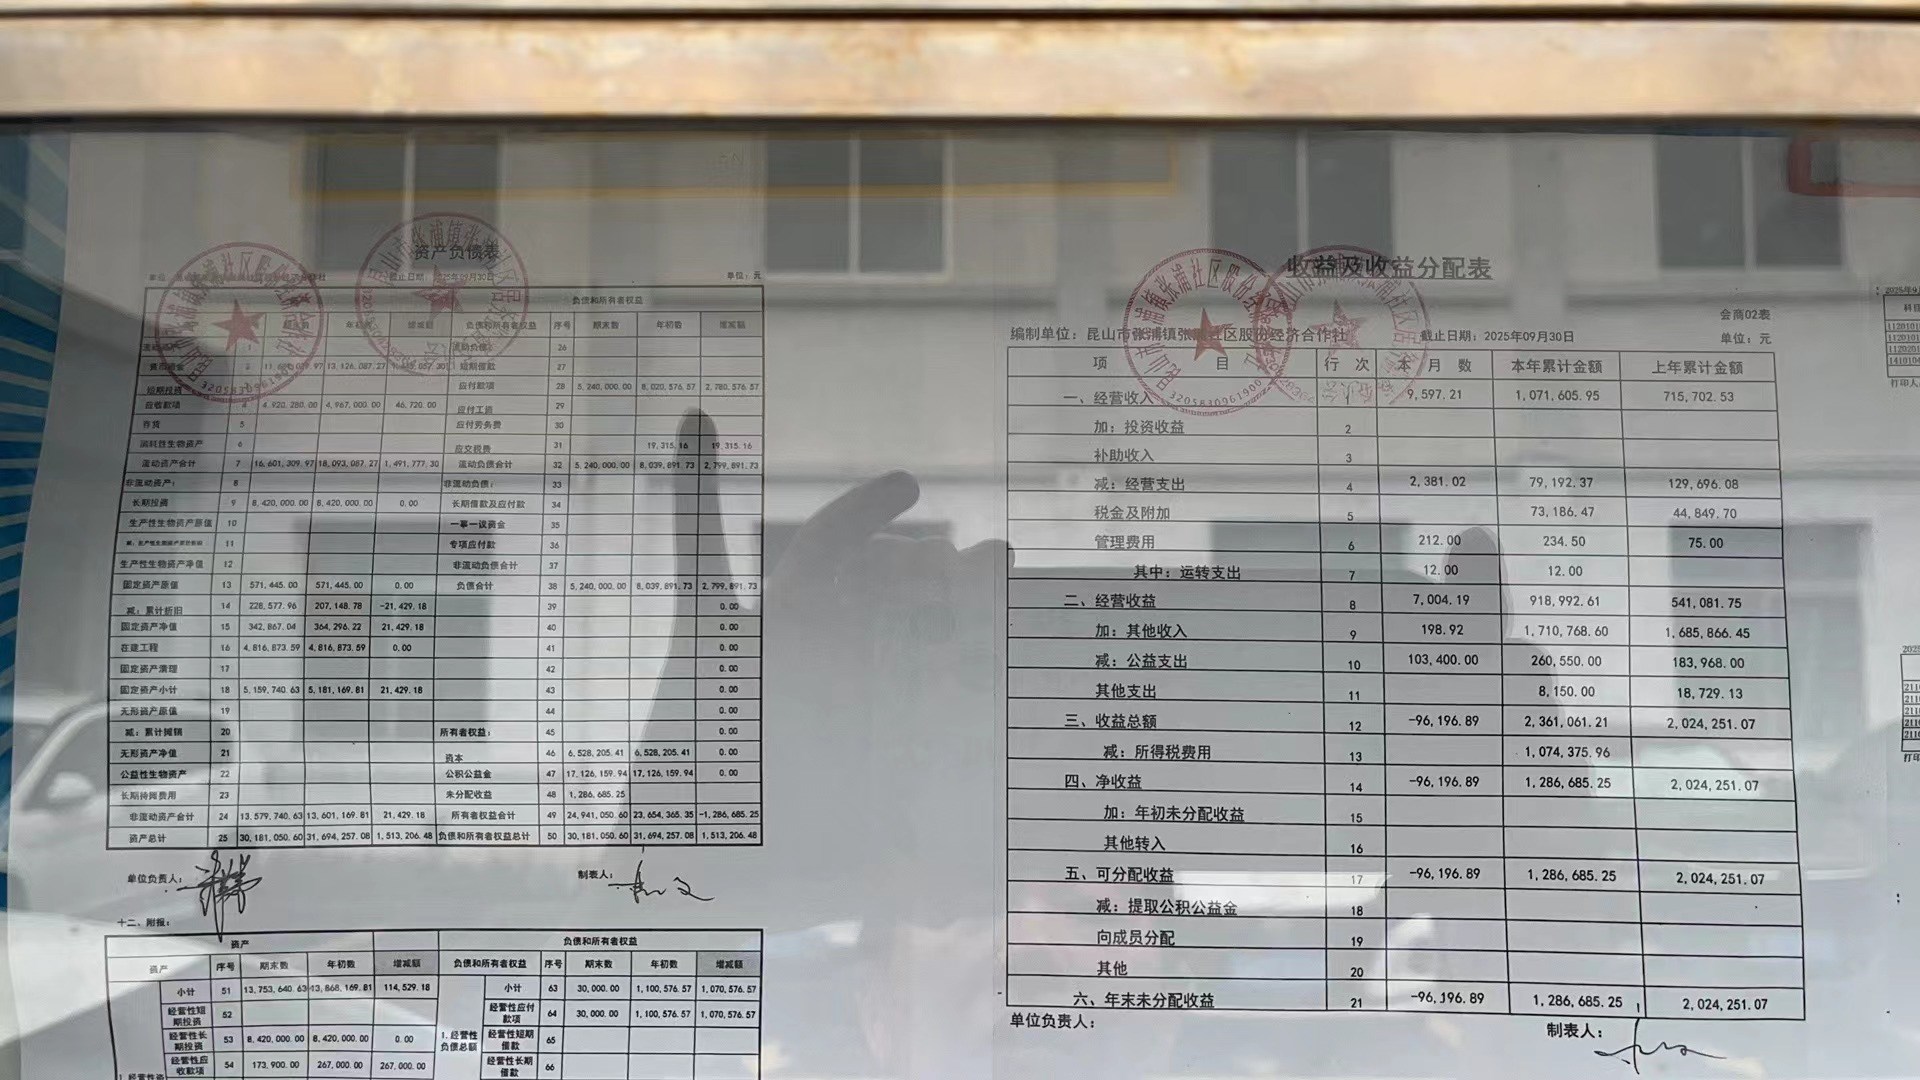 资产负债表
截止日期：2025年09月30日
单位：元
负债和所有者权益
年初数 增减额 负债和所有者权益 序号 期末数 年初数 增减额
流动资产 1 流动负债： 26
货币资金 2 13,126,087.27 短期借款 27
短期投资 应付款项 28 5,240,000.00 8,020,576.57 2,780,576.57
应收款项 4 4,920,280.00 4,967,000.00 46,720.00 应付工资 29
存货 5 应付劳务费 30
消耗性生物资产 6 应交税费 31 19,315.16 19,315.16
流动资产合计 7 16,601,309.97 18,093,087.27 1,491,777.30 流动负债合计 32 5,240,000.00 8,039,891.73 2,799,891.73
非流动资产： 8 非流动负债： 33
长期投资 9 8,420,000.00 8,420,000.00 0.00 长期借款及应付款 34
生产性生物资产原值 10 一事一议资金 35
减：生产性生物资产累计折旧 11 专项应付款 36
生产性生物资产净值 12 非流动负债合计 37
固定资产原值 13 571,445.00 571,445.00 0.00 负债合计 38 5,240,000.00 8,039,891.73 2,799,891.73
减：累计折旧 14 228,577.96 207,148.78 -21,429.18 39 0.00
固定资产净值 15 342,867.04 364,296.22 21,429.18 40 0.00
在建工程 16 4,816,873.59 4,816,873.59 0.00 41 0.00
固定资产清理 17 42 0.00
固定资产小计 18 5,159,740.63 5,181,169.81 21,429.18 43 0.00
无形资产原值 19 44 0.00
减：累计摊销 20 所有者权益： 45 0.00
无形资产净值 21 资本 46 6,528,205.41 6,528,205.41 0.00
公益性生物资产 22 公积公益金 47 17,126,159.94 17,126,159.94 0.00
长期待摊费用 23 未分配收益 48 1,286,685.25
非流动资产合计 24 13,579,740.63 13,601,169.81 21,429.18 所有者权益合计 49 24,941,050.60 23,654,365.35 -1,286,685.25
资产总计 25 30,181,050.60 31,694,257.08 1,513,206.48 负债和所有者权益总计 50 30,181,050.60 31,694,257.08 1,513,206.48
单位负责人： 制表人：
十二、附报：
资产 负债和所有者权益
资产 序号 期末数 年初数 增减额 负债和所有者权益 序号 期末数 年初数 增减额
小计 51 13,753,640.63 13,868,169.81 114,529.18 小计 63 30,000.00 1,100,576.57 1,070,576.57
经营性短期投资 52 1.经营性负债总额 经营性应付款项 64 30,000.00 1,100,576.57 1,070,576.57
经营性长期投资 53 8,420,000.00 8,420,000.00 0.00 经营性短期借款 65
经营性应收款项 54 173,900.00 267,000.00 267,000.00 经营性长期借款 66
收益及收益分配表
会商02表
编制单位：昆山市张浦镇张浦社区股份经济合作社 截止日期：2025年09月30日 单位：元
项 目 行 次 本 月 数 本年累计金额 上年累计金额
一、经营收入 1 9,597.21 1,071,605.95 715,702.53
加：投资收益 2
补助收入 3
减：经营支出 4 2,381.02 79,192.37 129,696.08
税金及附加 5 73,186.47 44,849.70
管理费用 6 212.00 234.50 75.00
其中：运转支出 7 12.00 12.00
二、经营收益 8 7,004.19 918,992.61 541,081.75
加：其他收入 9 198.92 1,710,768.60 1,685,866.45
减：公益支出 10 103,400.00 260,550.00 183,968.00
其他支出 11 8,150.00 18,729.13
三、收益总额 12 -96,196.89 2,361,061.21 2,024,251.07
减：所得税费用 13 1,074,375.96
四、净收益 14 -96,196.89 1,286,685.25 2,024,251.07
加：年初未分配收益 15
其他转入 16
五、可分配收益 17 -96,196.89 1,286,685.25 2,024,251.07
减：提取公积公益金 18
向成员分配 19
其他 20
六、年末未分配收益 21 -96,196.89 1,286,685.25 2,024,251.07
单位负责人： 制表人：
3205830961900